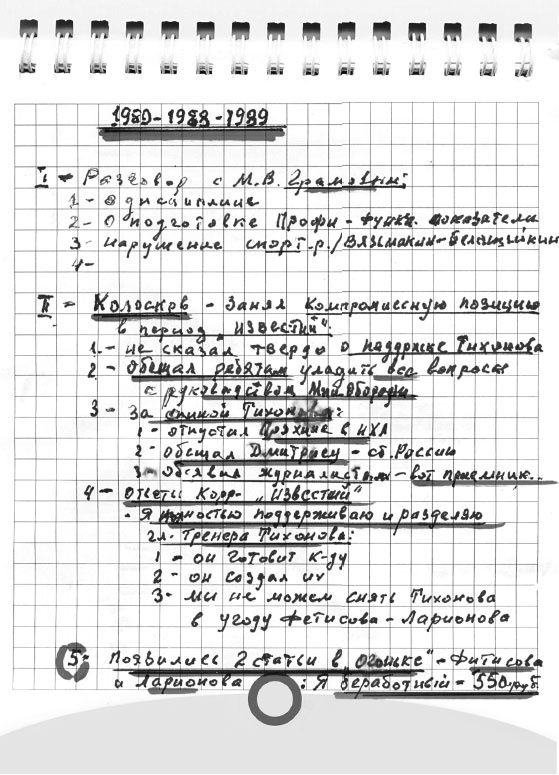 1980-1988-1989
I - Разговор с М.В. Грамовым:
1- о дисциплине
2- О подготовке Профи - функц. показатели
3- нарушение спорт.р./Вязьмикин-Белошейкин
4-
II - Колосков - занял компромиссную позицию
в период „Известий":
1.- не сказал твердо о поддержке Тихонова
2 - Обещал ребятам уладить все вопросы
с руководством Мин Обороны
3- За спиной Тихонова:
1- отпустил Пряхина в НХЛ
2- обещал Дмитриеву - сб. России
3- Объявил журналистам - вот приемник...
4 - Ответы Корр- „Известий"
- Я полностью поддерживаю и разделяю
гл. тренера Тихонова:
1 - он готовит к-ду
2- он создал их
3- мы не можем снять Тихонова
в угоду Фетисова - Ларионова
5- Появились 2 статьи в „Огоньке" - Фитисова
и Ларионова : Я безработный - 550 руб.